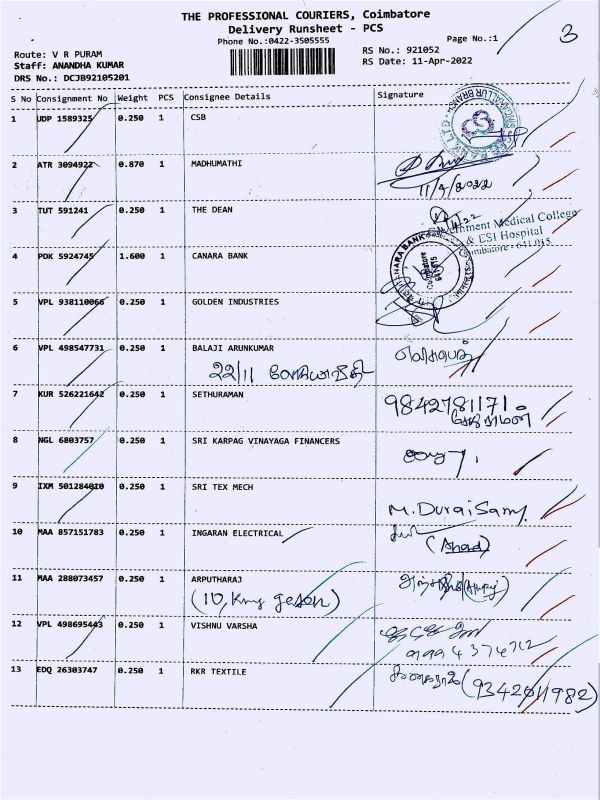 THE PROFESSIONAL COURIERS, Coimbatore
Delivery Runsheet - PCS
Phone No.:0422-3505555
Page No.:1
3
Route: V R PURAM
Staff: ANANDHA KUMAR
DRS No.: DCJB92105201
RS No.: 921052
RS Date: 11-Apr-2022
S No Consignment No Weight PCS Consignee Details Signature
1 UDP 1589325 0.250 1 CSB
2 ATR 3094922 0.870 1 MADHUMATHI
11/4/2022
3 TUT 591241 0.250 1 THE DEAN
Government Medical College
& ESI Hospital
Coimbatore - 641 015.
4 PDK 5924745 1.600 1 CANARA BANK
CANARA BANK
5 VPL 938110066 0.250 1 GOLDEN INDUSTRIES
6 VPL 498547731 0.250 1 BALAJI ARUNKUMAR
22/11
7 KUR 526221642 0.250 1 SETHURAMAN 9842781171
சேதுராமன்
8 NGL 6803757 0.250 1 SRI KARPAG VINAYAGA FINANCERS
9 IXM 501284010 0.250 1 SRI TEX MECH
M. DuraiSamy
10 MAA 857151783 0.250 1 INGARAN ELECTRICAL
(Anad)
11 MAA 288073457 0.250 1 ARPUTHARAJ
(10, King
12 VPL 498695443 0.250 1 VISHNU VARSHA
9994374712
13 EDQ 26303747 0.250 1 RKR TEXTILE
(9342011982)